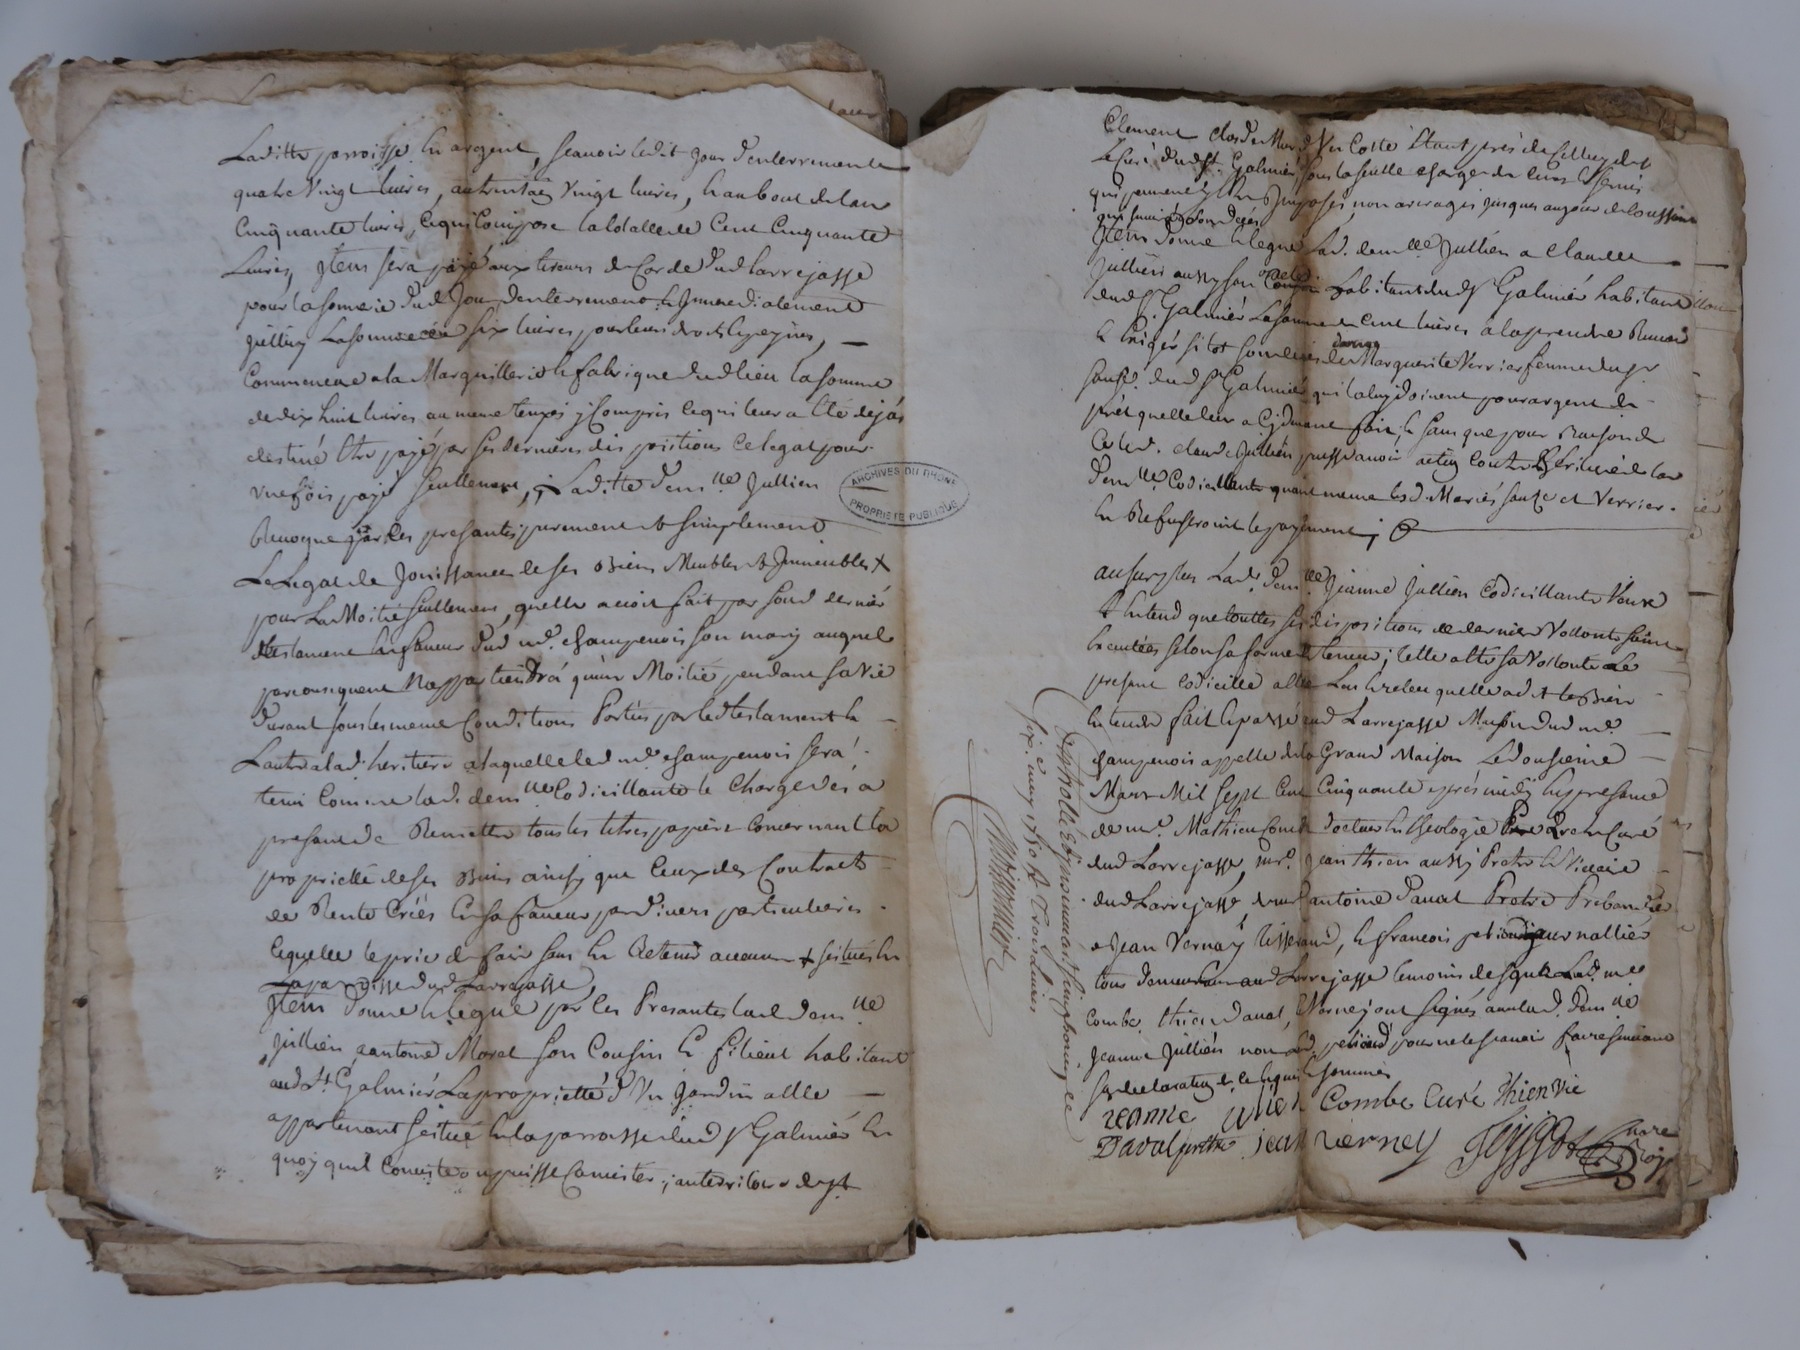 Laditte parroisse En argent, scavoir ledit jour d'enterrement
quatre vingt livres, au trentain vingt livres, & au bout de lan
Cinquante livres, ce qui Compose la totalle de Cent Cinquante
Livres, jtem sera payé aux tireurs de Corde dud Larrejasse
pour la sonnerie dud Jour d'enterrement & Jmmediatement
jcelluy La somme de six livres pour leurs droits & peynes, —
Comme encore a la Marguillerie & fabrique dud lieu la somme
de dix huit livres au meme temps y Compris ce qui leur a Eté dejas
destiné Etre payé par ses dernieres dispositions ce legat pour
une fois payé seullement, ; Laditte dem.lle Jullien
Revoque par les presantes purement & simplement
Le Legat de Jouissance de ses Biens Meubles & Jmmeubles +
pour La Moitié seullement, quelle avoit fait par sond dernier
testament En faveur dud m.e Champenois son mary auquel
par consequent N'appartiendrá qu'une Moitié pendant sa vie
Durant sous les meme Conditions Portées par led testament &
L'autre a lad heritiere a laquelle led m.e Champenois sera
tenu Comme lad. dem.lle Codicillante le Charge dés a
presant de Remettre tous les titres papiers Concernant la
proprietté de ses Biens ainsy que Ceux des Contracts
de Rente Créés En sa faveur par divers particuliers
Lequel elle le prie de faire sans En Retenir aucuns + scitués En
La parroisse dud Larrejasse
Jtem Donne & legue par les Presantes lad dem.lle
Jullien a antoine Morel son Cousin & filieul habitant
aud S.t Galmier La proprietté d'Un Jardin a elle —
appartenant scitué En la parroisse dud S.t Galmier En
quoy quil Consiste ou puisse Consister, ; au territoire de S.t
ARCHIVES DU RHONE
PROPRIETE PUBLIQUE
Clement Clos de Mur d'Un Costé Etant près de celluy de
Le Curé dud S.t Galmier sous la seulle charge de cens & servis
qui peuvent y Etre Jmposés, non arrerages jusques au jour de
qui sera son deces
Jtem Donne & legue Lad. dem.lle Jullien a Claude
Jullien aussy son oncle habitant dud S.t Galmier habitant
dud S.t Galmier La somme de Cent livres à la prendre Recevoir
& Exiger si tot son deces de Marguerite Verrier femme du s.r
Sauze dud S.t Galmier qui la luy doivent pour argent de
prêt quelle leur a Cydevant fait, & sans que pour Raison de
Ce led. Claude Jullien puisse avoir action Contre L'heritiere de lad
dem.lle Codicillante quand meme lesd Mariés Sauze et Verrier
En Refuseroint le payement ;
au surplus Lad. dem.lle Jeanne Jullien Codicillante Veut
& Entend que touttes ses dispositions de derniere Vollonté soint
Executées selon sa forme & teneur ; telle est sa Vollonté Le
present Codicille a elle Lu & relu quelle a dit tres Bien
Entendre fait & passé aud Larrejasse Maison dud m.e
Champenois appellé de la Grand Maison Le douzieme
Mars Mil Sept Cent Cinquante après midy En presance
de m.e Mathieu Combe docteur En Theologie Pretre & Curé
dud Larrejasse, m.e Jean thien aussy Pretre & Vicaire
dud Larrejasse, de m.e antoine Daval Pretre Prebendier
& Jean Vernay tisserand, & francois journallier
tous demeurant aud Larrejasse temoins desquels Lesd m.e
Combe, thien, Daval, & Vernay ont signés avec lad. dem.lle
Jeanne Jullien non led. pour ne le scavoir faire suivant
sa declaration de ce Enquis & sommés
jeanne julien Combe Curé Thien vic
Daval pretre jean vierney
Notre
Roy.